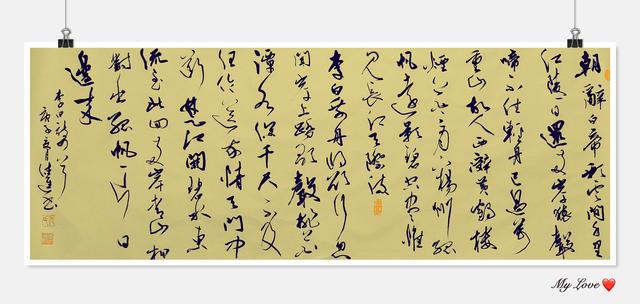 朝辭白帝彩云间千里
江陵一日還两岸猿聲
啼不住輕舟已過萬
重山故人西辭黄鶴樓
煙花三月下揚州孤
帆遠影碧空尽惟
见長江天際流
李白乘舟将欲行忽
闻岸上踏歌聲桃花
潭水深千尺不及
汪伦送我情天门中
断楚江開碧水東
流至此回两岸青山相
對出孤帆一片日
邊来
李白詩四首
庚子
My Love❤️